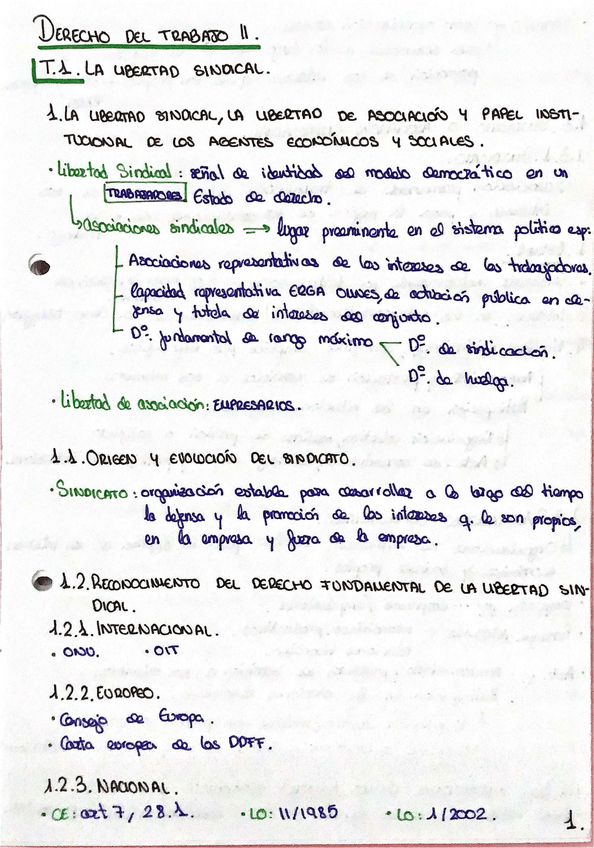 DERECHO DEL TRABAJO II.
T.1. LA LIBERTAD SINDICAL.
1. LA LIBERTAD SINDICAL, LA LIBERTAD DE ASOCIACIÓN Y PAPEL INSTI-
TUCIONAL DE LOS AGENTES ECONÓMICOS Y SOCIALES.
· Libertad Sindical: señal de identidad del modelo democrático en un
TRABAJADORES Estado de derecho.
↳ asociaciones sindicales ⇒ lugar preeminente en el sistema político esp:
- Asociaciones representativas de los intereses de los trabajadores.
- Capacidad representativa ERGA OMNES, de actuación pública en de-
fensa y tutela de intereses del conjunto.
- Dº. fundamental de rango máximo Dº. de sindicación.
Dº. de huelga.
· Libertad de asociación: EMPRESARIOS.
1.1. ORIGEN Y EVOLUCIÓN DEL SINDICATO.
· SINDICATO: organización estable para desarrollar a lo largo del tiempo
la defensa y la promoción de los intereses q. le son propios,
en la empresa y fuera de la empresa.
1.2. RECONOCIMIENTO DEL DERECHO FUNDAMENTAL DE LA LIBERTAD SIN-
DICAL.
1.2.1. INTERNACIONAL.
· ONU. · OIT
1.2.2. EUROPEO.
· Consejo de Europa.
· Carta europea de los DDFF.
1.2.3. NACIONAL.
· CE: art 7, 28.1. · LO: 11/1985 · LO: 1/2002.
1.